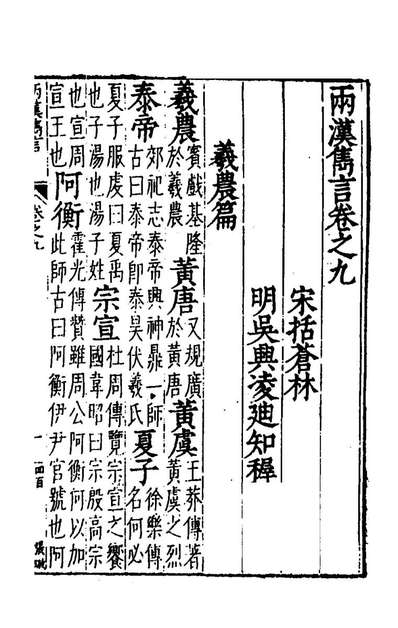 兩漢雋言卷之九
宋括蒼林
明吳興凌迪知穉
羲農篇
羲農賓戲基隆於羲農黃唐又規廣於黃唐黃虞王莽傳著黃虞之烈
泰帝郊祀志泰帝興神鼎一師古曰泰帝即泰昊伏羲氏夏子徐樂傳名何必
夏子服虔曰夏禹也子湯也湯子姓宗宣杜周傳覽宗宣之饗國韋昭曰宗殷高宗
也宣周宣王也阿衡霍光傳贊雖周公阿衡何以加此師古曰阿衡伊尹官號也阿
兩漢雋言
卷之九
一
四百